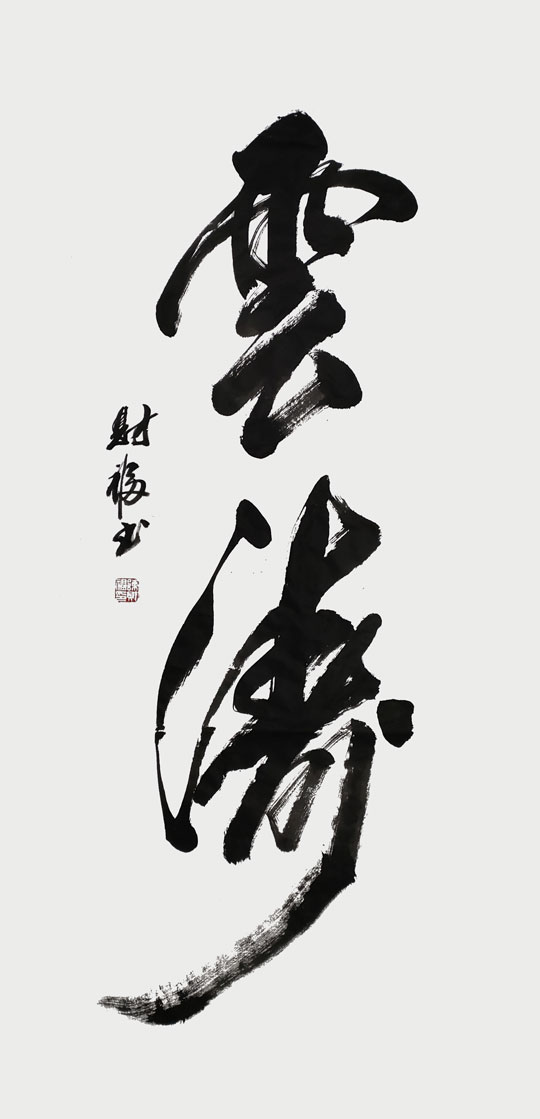 雲濤
財福书